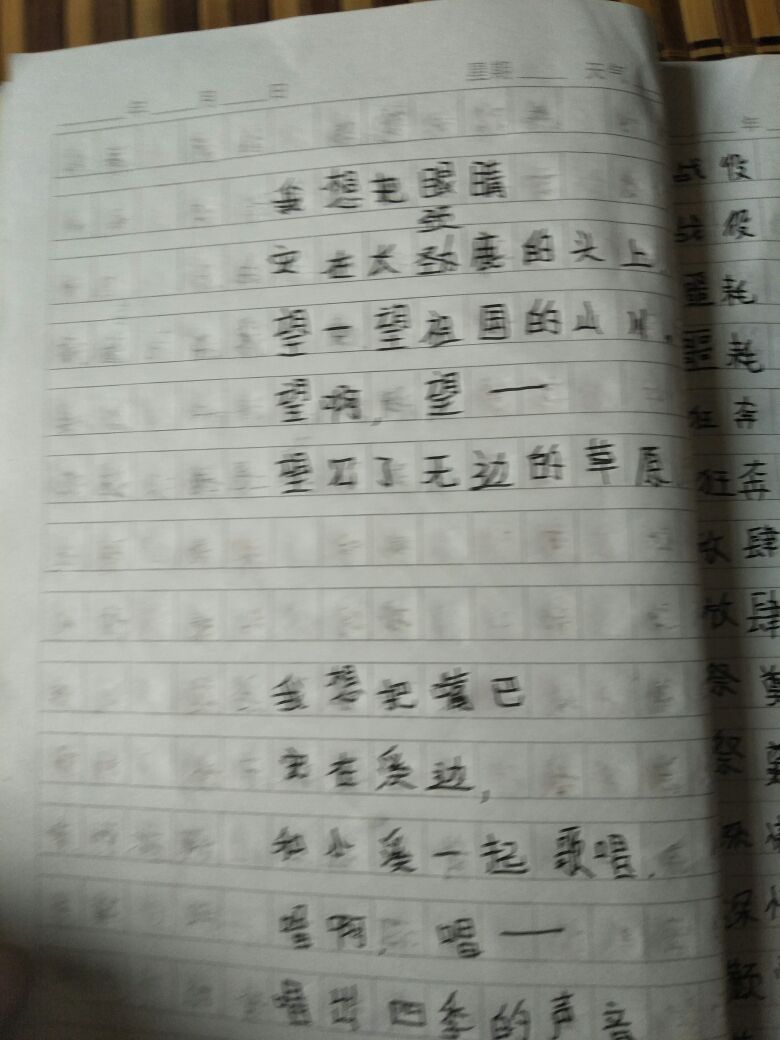 年 月 日 星期 天气
我想把眼睛
安在长颈鹿的头上,
望一望祖国的山川。
望啊,望——
望见了无边的草原
我想把嘴巴
安在溪边,
和小溪一起歌唱。
唱啊,唱——
唱出四季的声音
年
战役
战役
噩耗
噩耗
狂奔
狂奔
放肆
放肆
祭奠
祭奠
深
深
颤